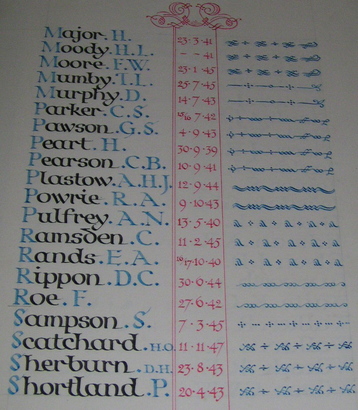 Major. H. 23·3·41
Moody. H.L. – – 41
Moore. F.W. 23·1·45
Mumby. T.L. 25·7·45
Murphy. D. 14·7·43
Parker. C.S. 15/16 7·42
Pawson. G.S. 4·9·43
Peart. H. 30·9·39
Pearson. C.B. 10·9·41
Plastow. A.H.J. 12·9·44
Powrie. R.A. 9·10·43
Pulfrey. A.N. 13·5·40
Ramsden. C. 11·2·45
Rands. E.A. 17·10·40
Rippon. D.C. 30·6·44
Roe. F. 27·6·42
Sampson. S. 7·3·45
Scatchard. H.O. 11·11·47
Sherburn. D.H. 23·8·43
Shortland. P. 20·4·43